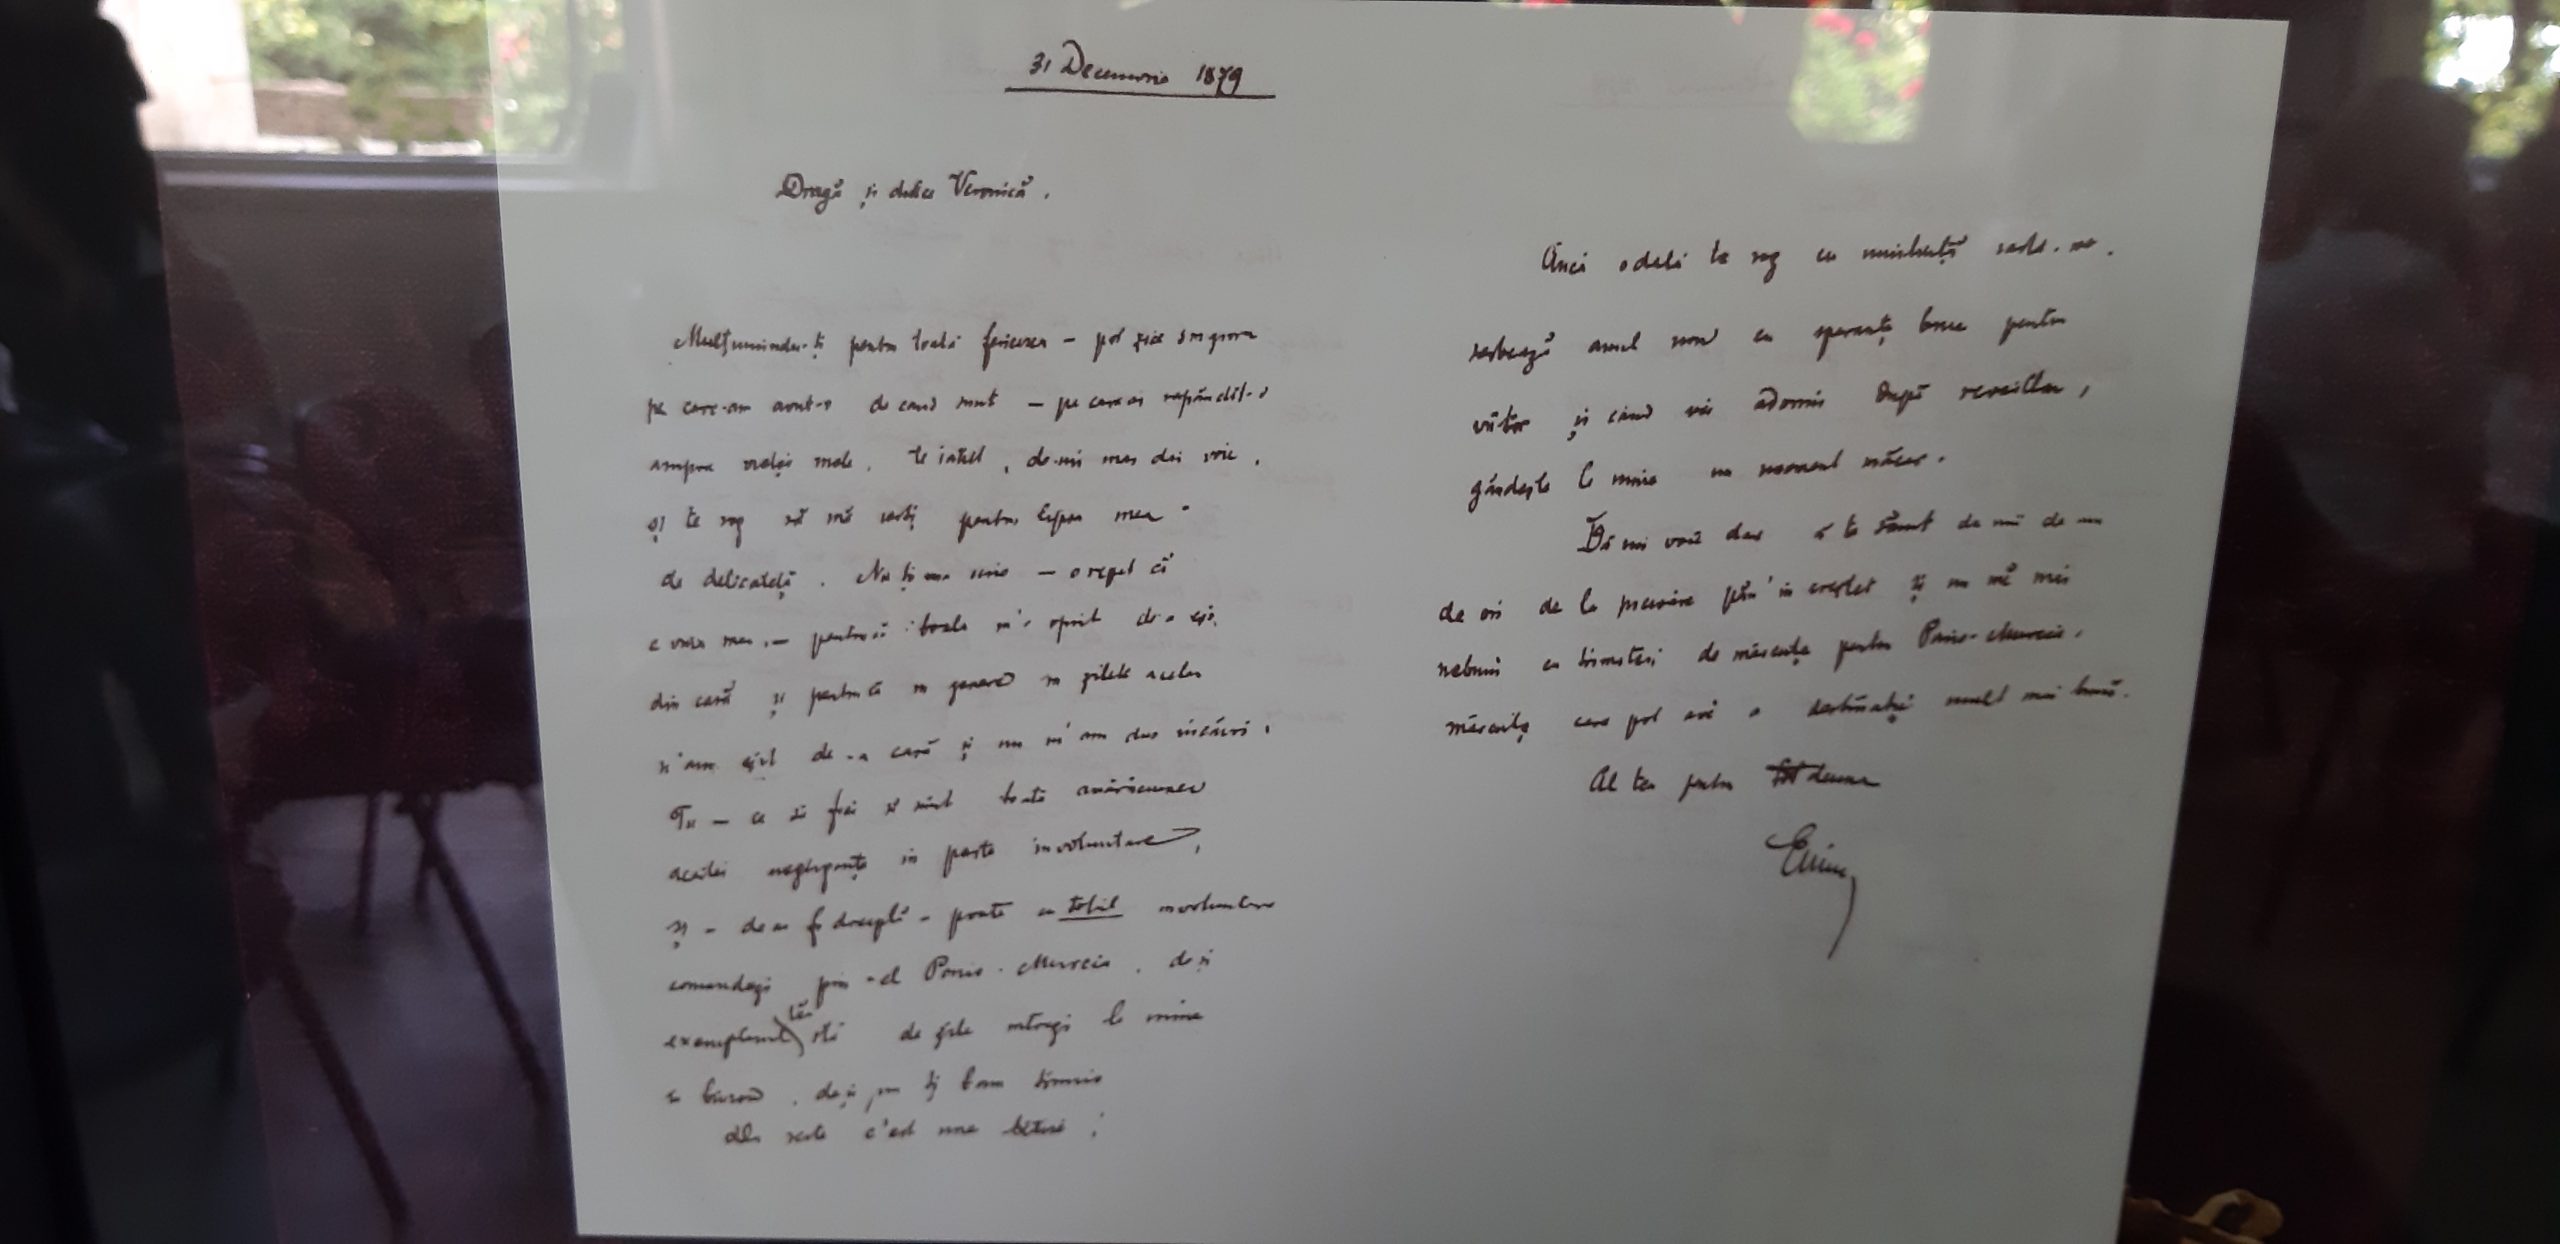 31 Decemvrie 1879
Dragă și dulce Veronică,
Mulțumindu-ți pentru toată fericirea – pot zice singura
pe care-am avut-o de cand sunt – pe care ai rspândit-o
asupra vieței mele, te sărut, de-mi mai dai voie,
și te rog să mă ierți pentru lipsa mea
de delicateță. Nu ți-am scris – o repet că
e vina mea, – pentru că boala m'a oprit de-a eși
din casă și pentru că în genere în zilele acelea
n'am eșit de-a casă și nu m'am dus nicăiri.
Tu – ce să faci să simt toată amărăciunea
acestei negligențe în parte involuntare,
Și – de-a fi dreaptă – poate cu totul involuntare
comandezi prin el Paris-Murcia, deși
exemplarul tău stă de zile întregi la mine
în birou, deși nu ți l-am trimis
du reste c'est une bêtise;
Ânca odată te rog cu umilință iartă-mă,
serbează anul nou cu speranțe bune pentru
viitor și când vei adormi după reveillon,
gândește la mine un moment măcar.
Dă-mi voie dar să te sărut de mii de
de ori de la picioare păn' în creștet și nu mă mai
nebuni cu trimiteri de mărunțiș pentru Paris-Murcia,
mărunțiș care pot avè o destinație mult mai bună.
Al tău pentru totdeuna
Emin